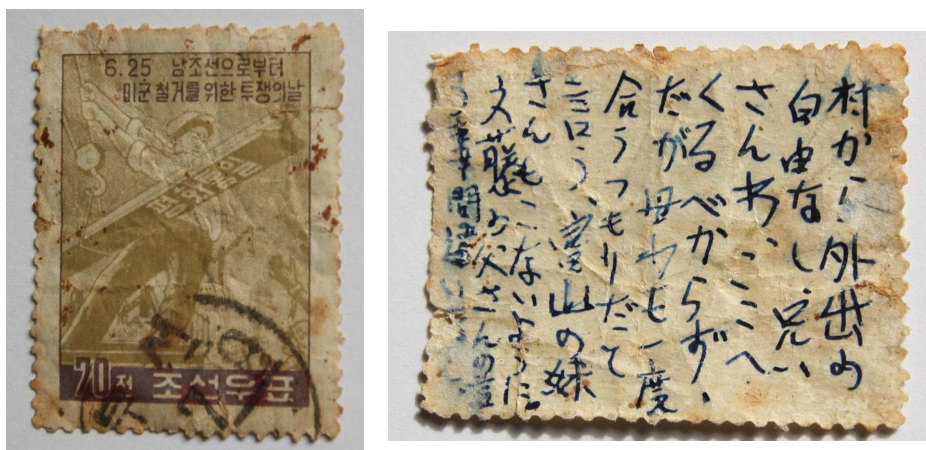 6.25 남조선으로부터
미군 철거를 위한 투쟁의날
70전 조선우표
村から外出の
自由なし、兄い
さんわ、ここへ
くるべからず、
だが母わも一度
合うつもりだて
言う、富山の妹
さんもこないように
お父さんの言